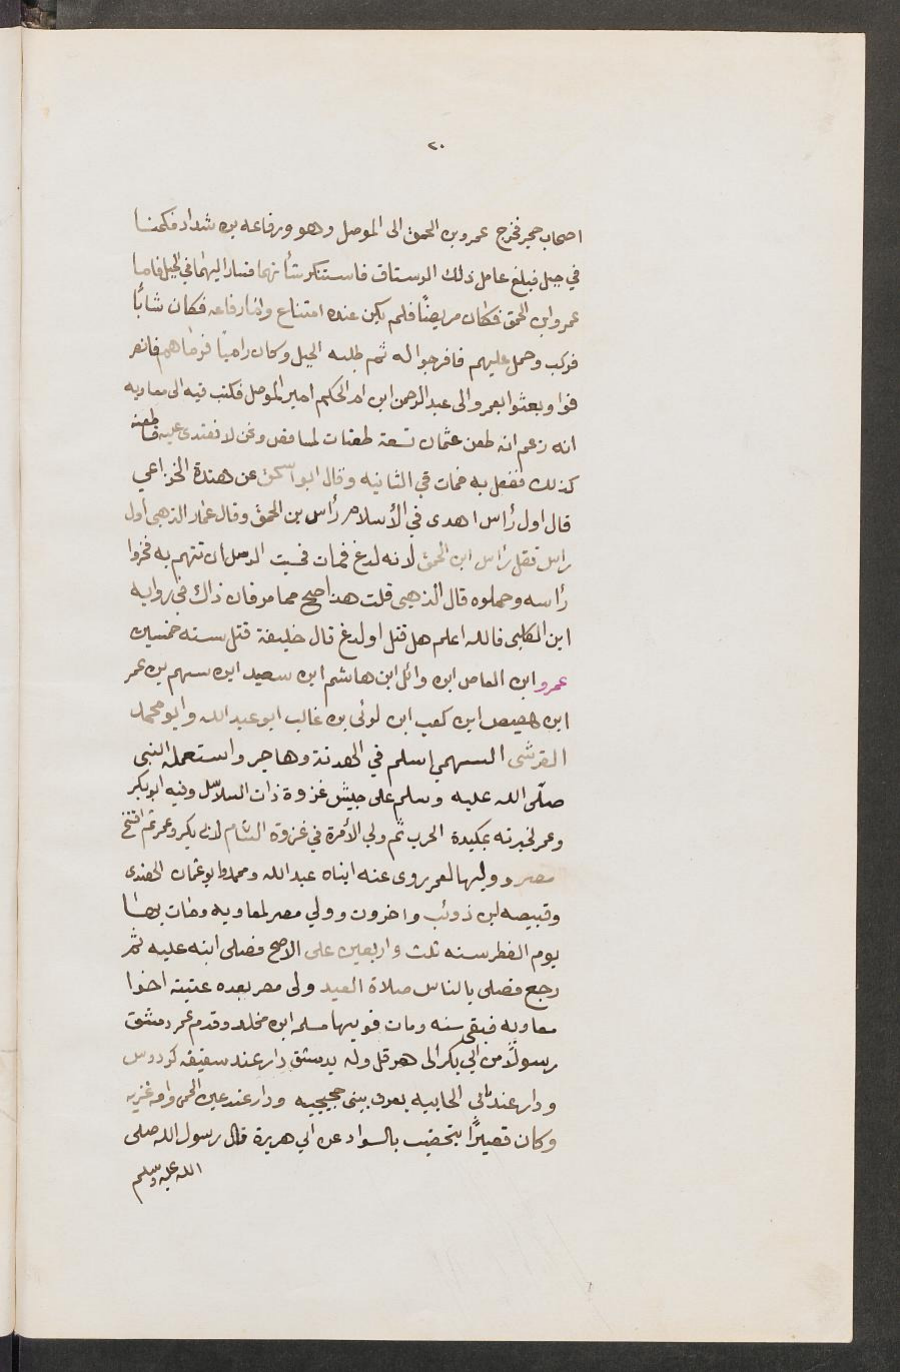 ٢٠
اصحاب حجر فخرج عمرو بن الحمق الى الموصل وهو ورفاعه بن شداد فكمنا
في جبل فبلغ عامل ذلك الرستاق فاستنكر شأنهما فسار اليهما في الخيل فاما
عمرو ابن الحمق فكان مريضًا فلم يكن عنده امتناع واما رفاعه فكان شابًا
فركب وحمل عليهم فافرجوا له ثم طلبه الخيل وكان راميًا فرماهم فانصر
فوا وبعثوا بعمرو الى عبد الرحمن ابن ام الحكم امير الموصل فكتب فيه الى معاويه
انه زعم انه طعن عثمان تسعة طعنات ونحن لا نعتدى عليه فاطعنه
كذلك ففعل به فمات في الثانيه وقال ابو اسحق عن هندة الخزاعي
قال اول رأس اهدى في الأسلام رأس بن الحمق وقال عمار الذهبى اول
راس نقل راس ابن الحمق لانه لدغ فمات فخشيت الرسل ان تتهم به فخزوا
رأسه وحملوه قال الذهبى قلت هذا اصح مما مر فان ذاك في روايه
ابن الكلبى فالله اعلم هل قتل او لدغ قال خليفة قتل سنه خمسين
عمرو ابن العاص ابن وائل ابن هاشم ابن سعيد ابن سهم بن عمر
ابن هصيص ابن كعب ابن لوئى بن غالب ابو عبد الله وابو محمد
القرشى السهمي اسلم في الهدنة وهاجر واستعمله النبى
صلّى الله عليه وسلم على جيش غزوة ذات السلاسل وفيه ابو بكر
وعمر لخبرته بمكيدة الحرب ثم ولي الأمرة في غزوة الشام لابى بكر وعمر ثم افتتح
مصر ووليها لعمر روى عنه ابناه عبد الله ومحمد وابو عثمان الهندى
وقبيصه ابن ذوئب واخرون وولي مصر لمعاويه ومات بها
يوم الفطر سنه ثلث واربعين على الاصح فصلى ابنه عليه ثم
رجع فصلى بالناس صلاة العيد ولى مصر بعده عتيبة اخوا
معاويه فبقى سنه ومات فوليها مسلمه ابن مخلد وقدم عمر دمشق
رسولاً من ابي بكر الى هرقل وله بدمشق دار عند سقيفه كردوس
ودار عند باب الجابيه يعرف ببنى حجيجيه ودار عند عين الحمى وامه عنزيه
وكان قصيرًا يتخضب بالسواد عن ابي هريرة قال رسول الله صلى
الله عليه وسلم